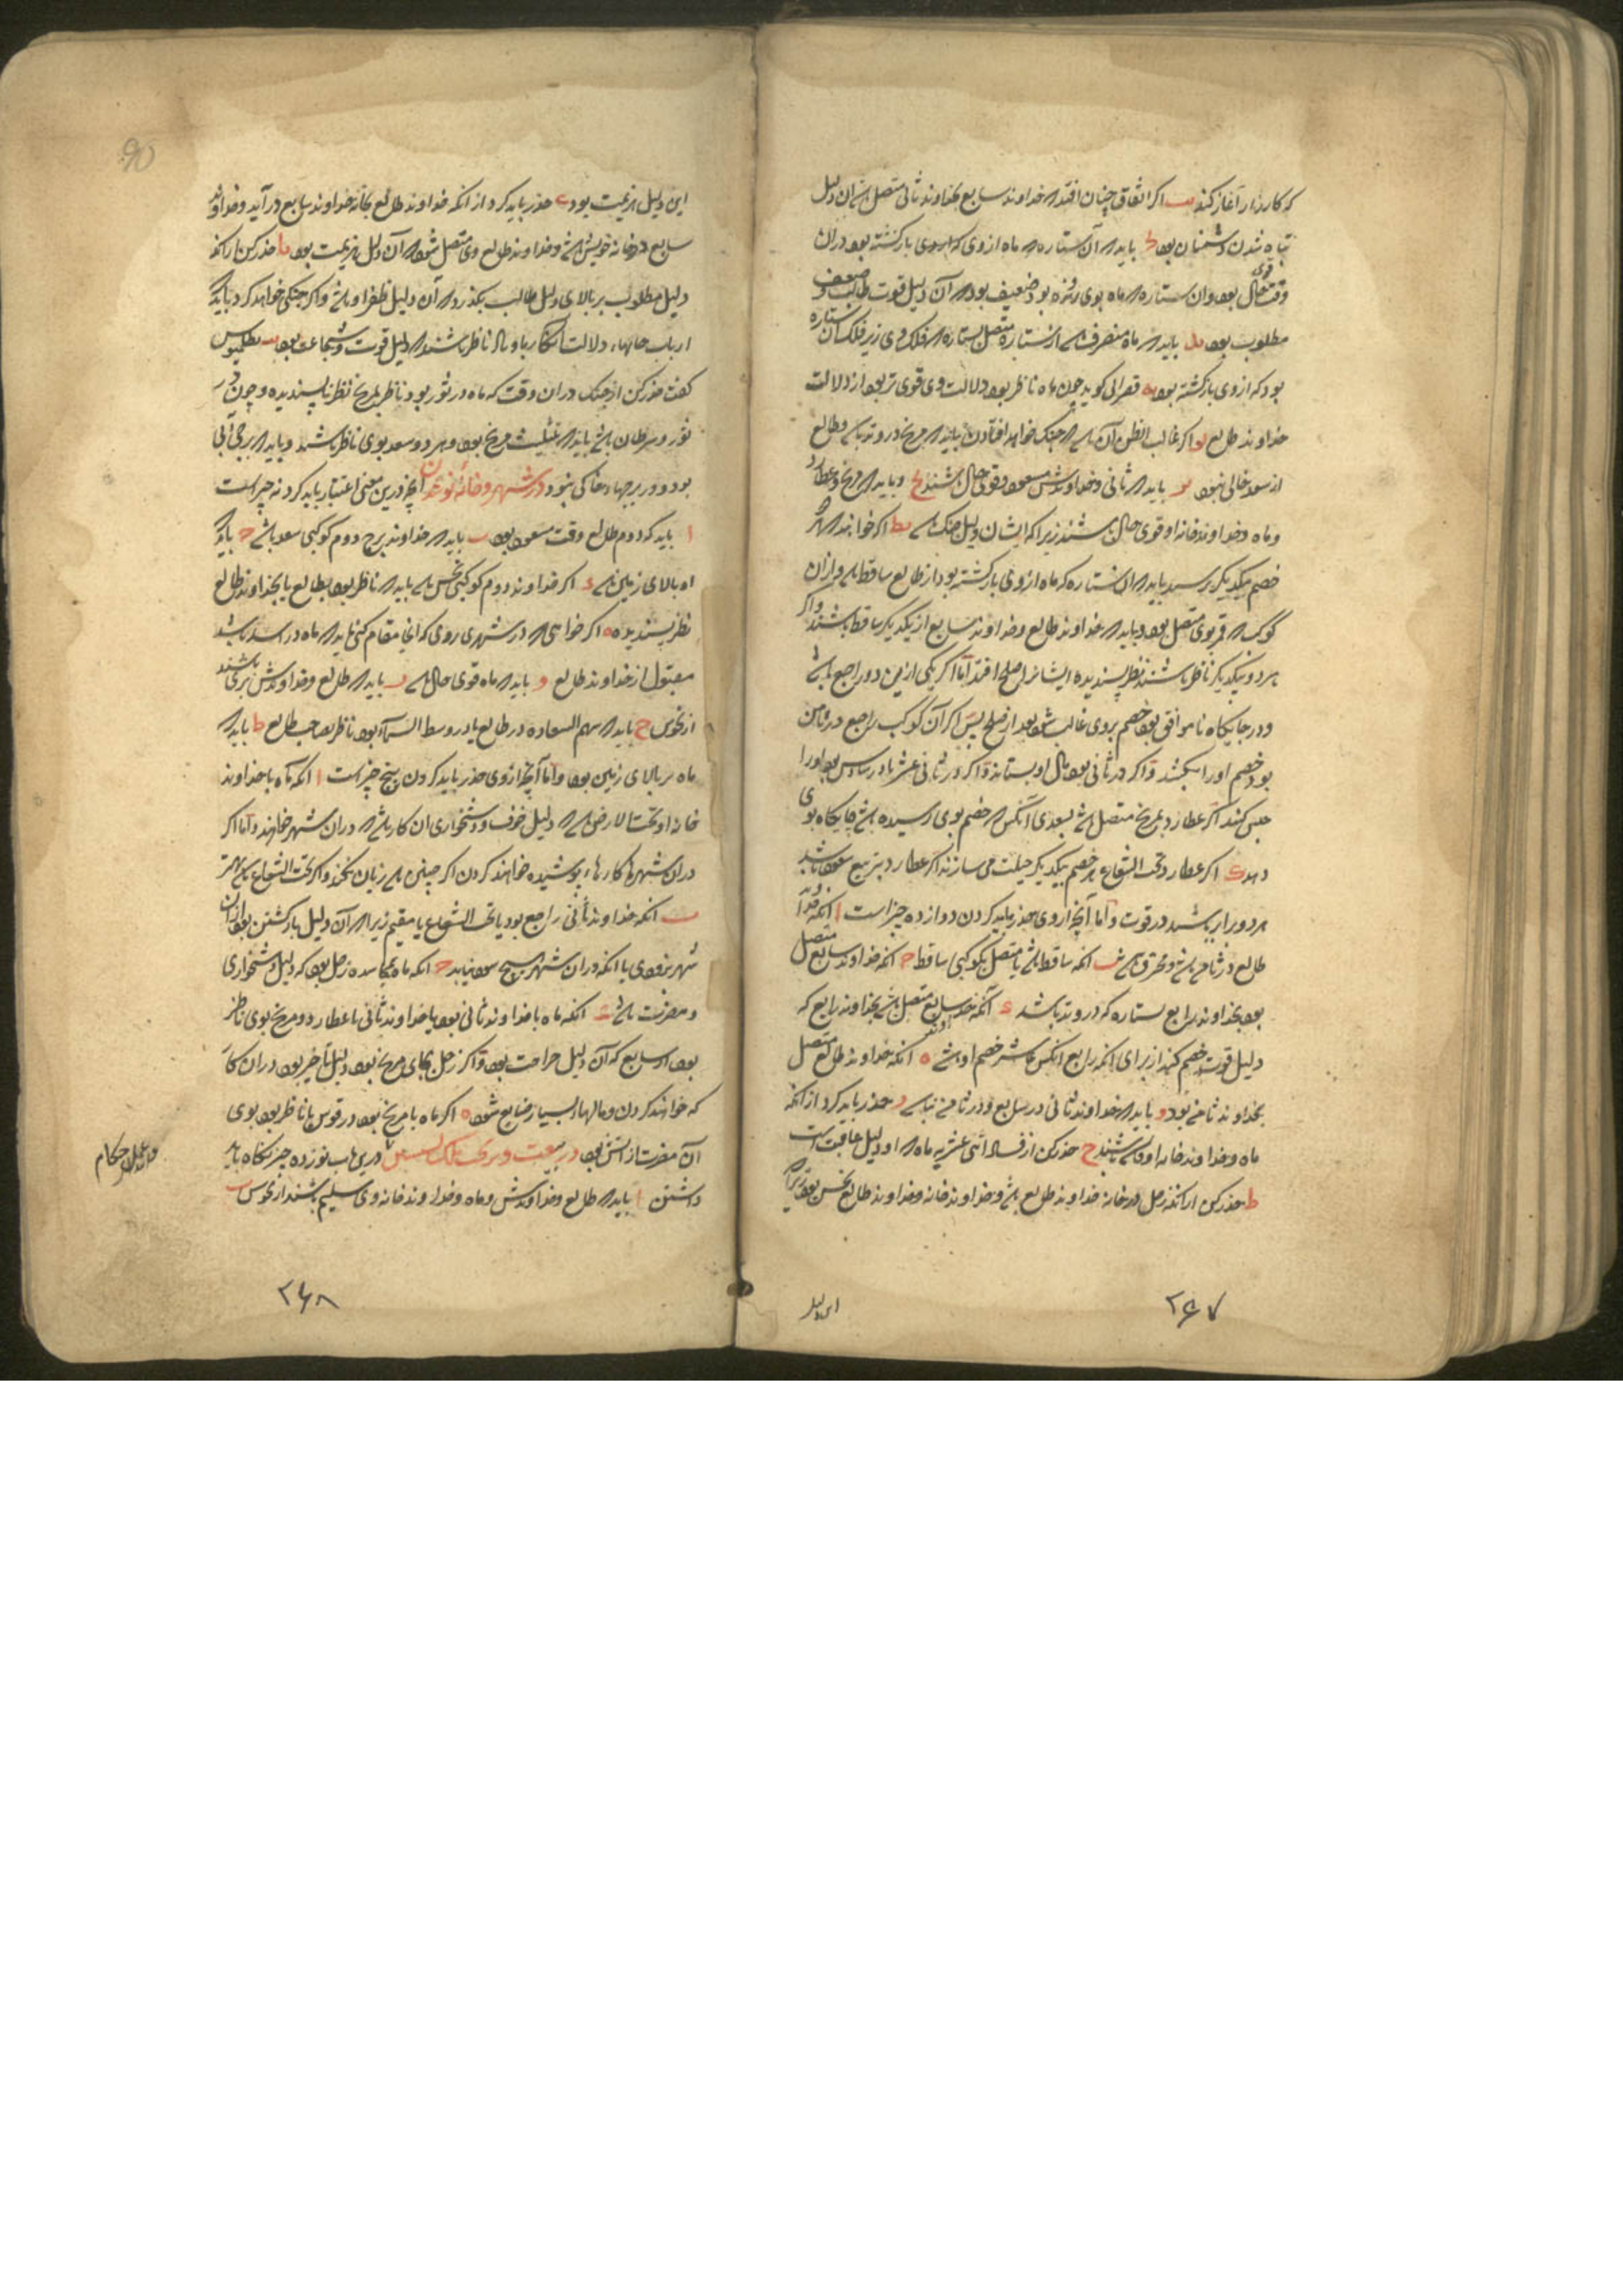 که کارزار آغاز کند یب اکر اتفاق چنان افتد که خداوند سابع بخداوند ثانی متصل باشد ان دلیل
تباه شدن دشمنان بود باید که آن ستاره که ماه ازوی بازکشته بود دران
وقت قوی حال بود وان ستاره که ماه بوی رونده بود ضعیف بود که آن دلیل قوت طالب و ضعف
مطلوب بود ید باید که ماه منصرف باشد از ستاره متصل بستاره که فلک وی زیر فلک آن ستاره
بود که ازوی بازکشته بود یه قصرانی کوید چون ماه ناظر بود دلالت وی قوی تر بود از دلالت
خداوند طالع یو اکر غالب الظن آن باشد که جنک خواهد افتادن باید که مریخ در وتد باشد و طالع
از سعد خالی نبود یز باید که ثانی و خداوندش مسعود و قوی حال باشند یح و باید که مریخ و عطارد
و ماه و خداوند خانه او قوی حال باشند زیرا که ایشان دلیل جنک باشد یط اکر خواهند که هر دو
خصم بیکدیکر رسند باید که ان ستاره که ماه ازوی بازکشته بود از طالع ساقط باشد و ازان
کوکب که قمر بوی متصل بود و باید که خداوند طالع و خداوند سابع از یکدیکر ساقط باشند و اکر
هر دو بیکدیکر ناظر باشند نظر پسندیده ایشانرا صلح افتد اما اکر یکی ازین دو راجع باشد
و در جایکاه ناموافق بود خصم بروی غالب شود بعد از صلح پس اکر آن کوکب راجع در ثامن
بود خصم اورا بکشد و اکر در ثانی بود مال او بستاند و اکر در ثانی عشر یا در سادس بود اورا
حبس کند اکر عطارد بمریخ متصل باشد بسعدی آنکس که خصم بوی رسیده باشد جایکاه بوی
دهد ک اکر عطارد تحت الشعاع بود هر خصم بیکدیکر حیلت می سازند اکر عطارد بتربیع سعود باشد
هر دو برابر باشند در قوت و اما آنچه ازوی حذر باید کردن دوازده چیز است ا انکه خداوند
طالع در ثامن باشد و محترق باشد ب انکه ساقط باشد یا متصل بکوکبی ساقط ج انکه خداوند سابع متصل
بود بخداوند رابع بستاره که در وتد باشد د آنکه خداوند سابع متصل باشد بخداوند رابع که
دلیل قوت خصم کند از برای انکه رابع انکس عاشر خصم او باشد ه انکه خداوند طالع متصل
بخداوند ثامن بود و باید که خداوند ثانی در سابع و در ثامن نباشد ز حذر باید کرد از انکه
ماه و خداوند خانه او باشند ح حذر کن از فساد اثنی عشریه ماه که او دلیل عاقبت است
ط حذر کن از انکه زحل در خانه خداوند طالع باشد و خداوند خانه و خداوند طالع نحس بود زیرا که
این دلیل
۲۶۷
این دلیل هزیمت بود ی حذر باید کرد از انکه خداوند طالع بخانه خداوند سابع در آید و خداوند
سابع در خانه خویش باشد و خداوند طالع وی متصل شود که آن دلیل هزیمت بود یا حذر کن از انکه
دلیل مطلوب بر بالای دلیل طالب بکذرد که آن دلیل ظفر او باشد و اکر جنکی خواهد کرد باید که
ارباب خانهاء دلالت آنکار باوتاد ناظر باشند که دلیل قوت و شجاعت بود یب بطلمیوس
کفت حذر کن از جنک دران وقت که ماه در ثور بود و ناظر بمریخ نظر ناپسندیده و چون در
ثور و سرطان باشد باید که بتثلیث مریخ بود و هر دو سعد بوی ناظر باشند و باید که برجی آبی
بود و در برجهاء خاکی نبود در شهر و خانهٔ نو شدن آنچه درین معنی اعتبار باید کرد نه چیز است
ا باید که دوم طالع وقت مسعود بود ب باید که خداوند برج دوم کوکبی سعد باشد ج باید که
او بالای زمین باشد د اکر خداوند دوم کوکبی نحس باشد باید که ناظر بود بطالع یا بخداوند طالع
نظر پسندیده ه اکر خواهی که در شهری روی که انجا مقام کنی باید که ماه در اسد باشد
مقبول از خداوند طالع و باید که ماه قوی حال باشد ز باید که طالع و خداوندش بری باشند
از نحوس ح باید که سهم السعاده در طالع یا در وسط السماء بود ناظر بصاحب طالع ط باید که
ماه بر بالای زمین بود و اما آنچه ازوی حذر باید کردن پنج چیز است ا انکه ماه با خداوند
خانه او تحت الارض باشد که دلیل خوف و دشخواری ان کار باشد که دران شهر خواهند و اما اکر
دران شهرها کارهاء پوشیده خواهند کردن اکر چنین باشد زیان نکند و اکر تحت الشعاع باشد بهتر
ب انکه خداوند ثانی راجع بود یا تحت الشعاع یا مقیم زیرا که آن دلیل بازکشتن بود ازان
شهر بزودی یا انکه دران شهر هیچ سود نیابد ج انکه ماه بجاسده زحل بود که دلیل دشخواری
و مضرت باشد د انکه ماه با خداوند ثانی بود یا خداوند ثانی با عطارد و مریخ بوی ناظر
بود از سابع که آن دلیل جراحت بود و اکر زحل بجای مریخ بود دلیل تأخیر بود دران کار
که خواهند کردن و مالهاء بسیار ضایع شود ه اکر ماه با مریخ بود در قوس یا ناظر بود بوی
آن مضرت از آتش بود در بیعت و بر تخت ملک نشستن درین باب نوزده چیز نکاه باید
داشتن ا باید که طالع و خداوندش و ماه و خداوند خانه وی سلیم باشند از نحوس ب
۲۶۸